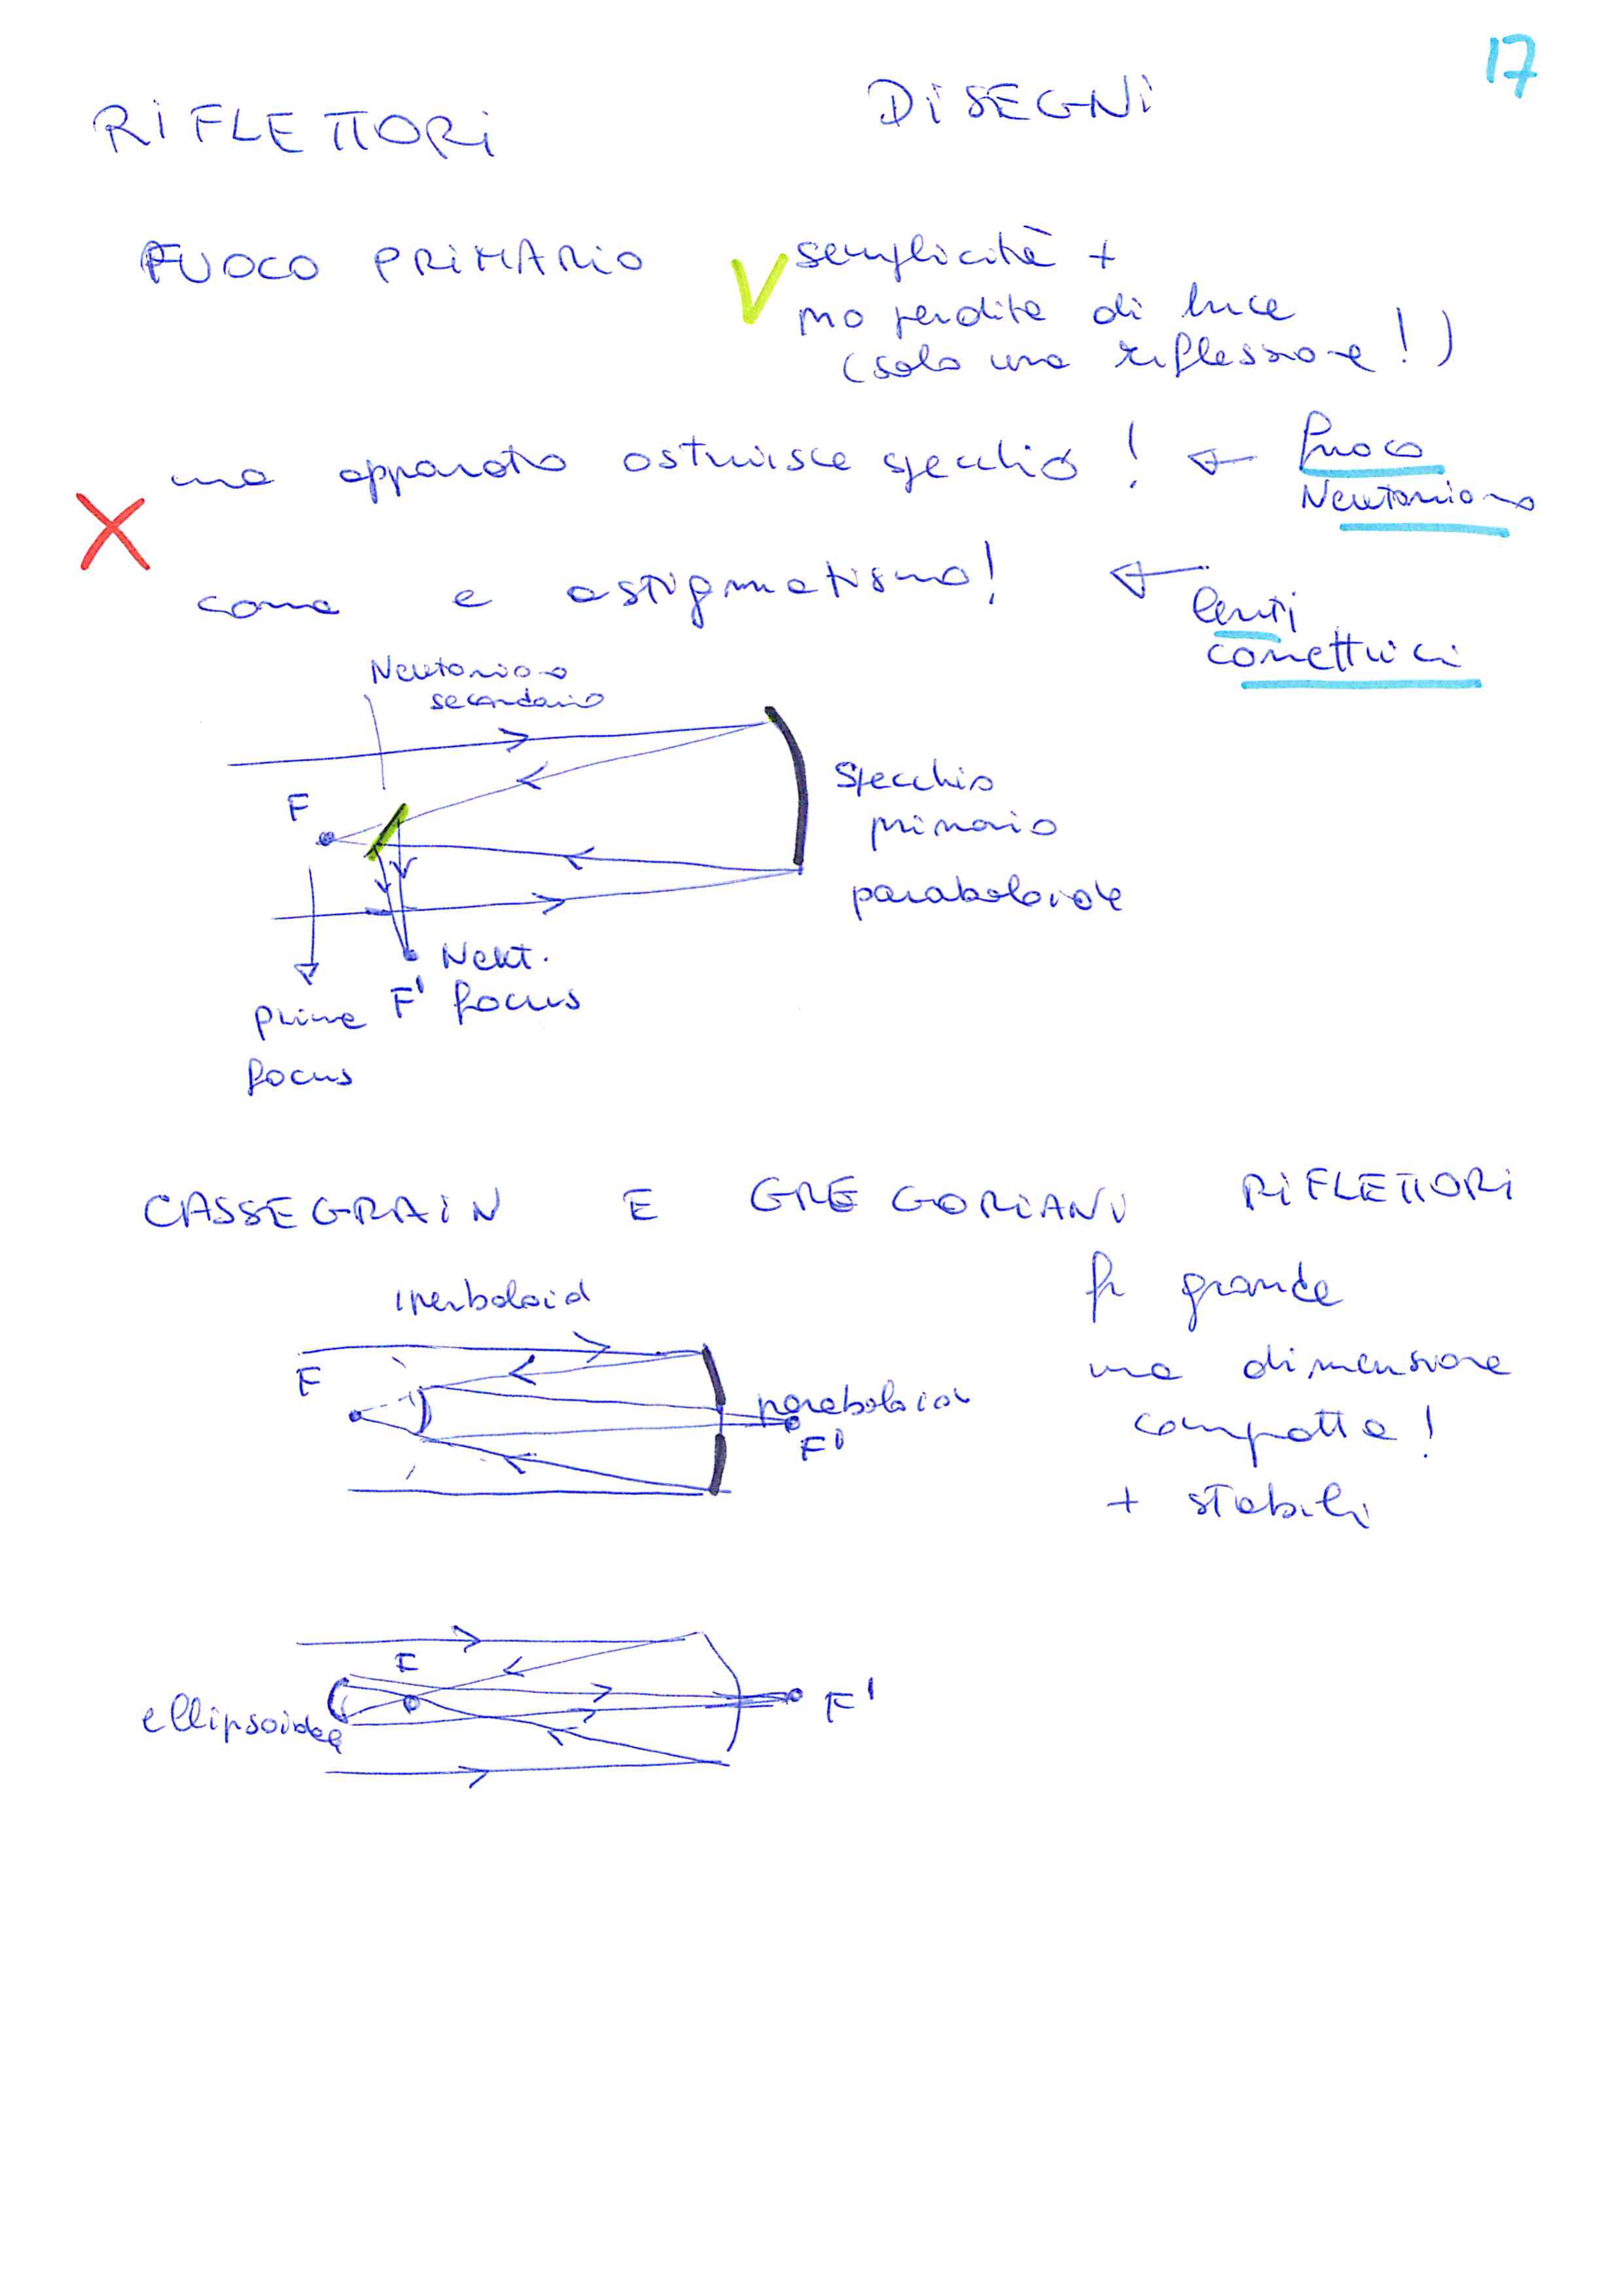 17
RIFLETTORI DISEGNI
FUOCO PRIMARIO V semplicità +
no perdite di luce
(solo una riflessione!)
ma apparato ostruisce specchio! ← fuoco
Newtoniano
X
coma e astigmatismo! ←
lenti
correttrici
Newtoniano
secondario
F
Specchio
primario
paraboloide
Newt.
F' focus
prime
focus
CASSEGRAIN E GREGORIANI RIFLETTORI
iperboloid
fr grande
F
ma dimensione
paraboloide
compatta!
F'
+ stabili
F
ellipsoide
F'